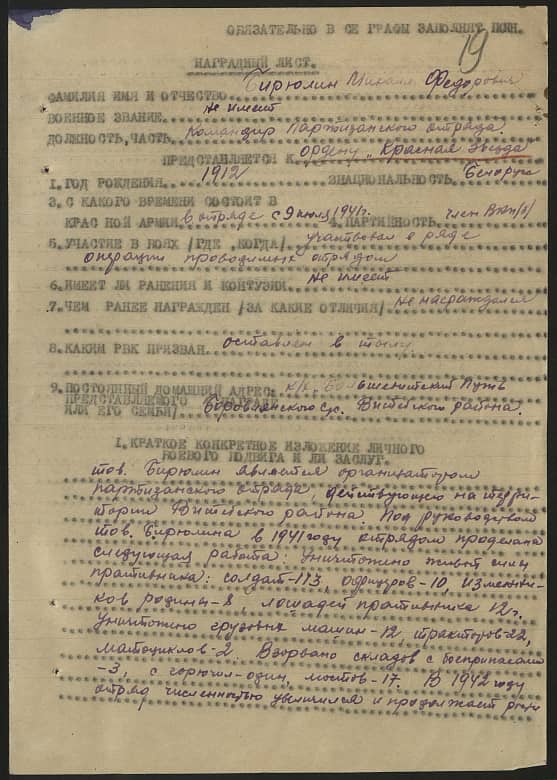 ОБЯЗАТЕЛЬНО В СЕ ГРАФЫ ЗАПОЛНЯТ ПОЛН.
19
НАГРАДНЫЙ ЛИСТ.
Бирюлин Михаил Федорович
ФАМИЛИЯ ИМЯ И ОТЧЕСТВО
не имеет
ВОЕННОЕ ЗВАНИЕ.
ДОЛЖНОСТЬ,ЧАСТЬ. Командир Партизанского отряда.
ПРЕДСТАВЛЯЕТСЯ К ордену „Красная Звезда"
I. ГОД РОЖДЕНИЯ. 1912 2НАЦИОНАЛЬНОСТЬ. Беларус
3. С КАКОГО ВРЕМЕНИ СОСТОИТ В
КРАС НОЙ АРМИИ. в отряде с 9 июля 1941г. 4. ПАРТИЙНОСТЬ. член ВКП/б/
5. УЧАСТИЕ В БОЯХ /ГДЕ ,КОГДА/. участвовал в ряде
операций проводимых отрядом
6. ИМЕЕТ ЛИ РАНЕНИЯ И КОНТУЗИИ. не имеет
7. ЧЕМ РАНЕЕ НАГРАЖДЕН /ЗА КАКИЕ ОТЛИЧИЯ/ не награждался
8. КАКИМ РВК ПРИЗВАН. оставлен в тылу.
9. ПОСТОЯННЫЙ ДОМАШНИЙ АДРЕС: к/х. Большевитский Путь
ПРЕДСТАВЛЯЕМОГО НАГРАДЕ
ИЛИ ЕГО СЕМЬИ/ Витебского района.
I. КРАТКОЕ КОНКРЕТНОЕ ИЗЛОЖЕНИЕ ЛИЧНОГО
БОЕВОГО ПОДВИГА И ЛИ ЗАСЛУГ.
тов. Бирюлин является организатором
партизанского отряда, действующего на терри-
тории Витебского района. Под руководством
тов. Бирюлина в 1941 году отрядом проделана
следующая работа: Уничтожено живой силы
противника: солдат-113, офицеров-10, изменни-
ков родины-8, лошадей противника 12 г.
Уничтожено грузовых машин-12, тракторов-22,
мотоциклов-2. Взорвано складов с боеприпасами
-3, с горючим-один, мостов-17. В 1942 году
отряд численностью увеличился и продолжает